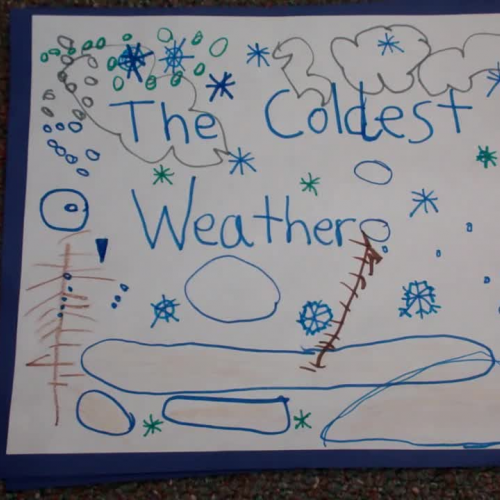 The Coldest
Weather